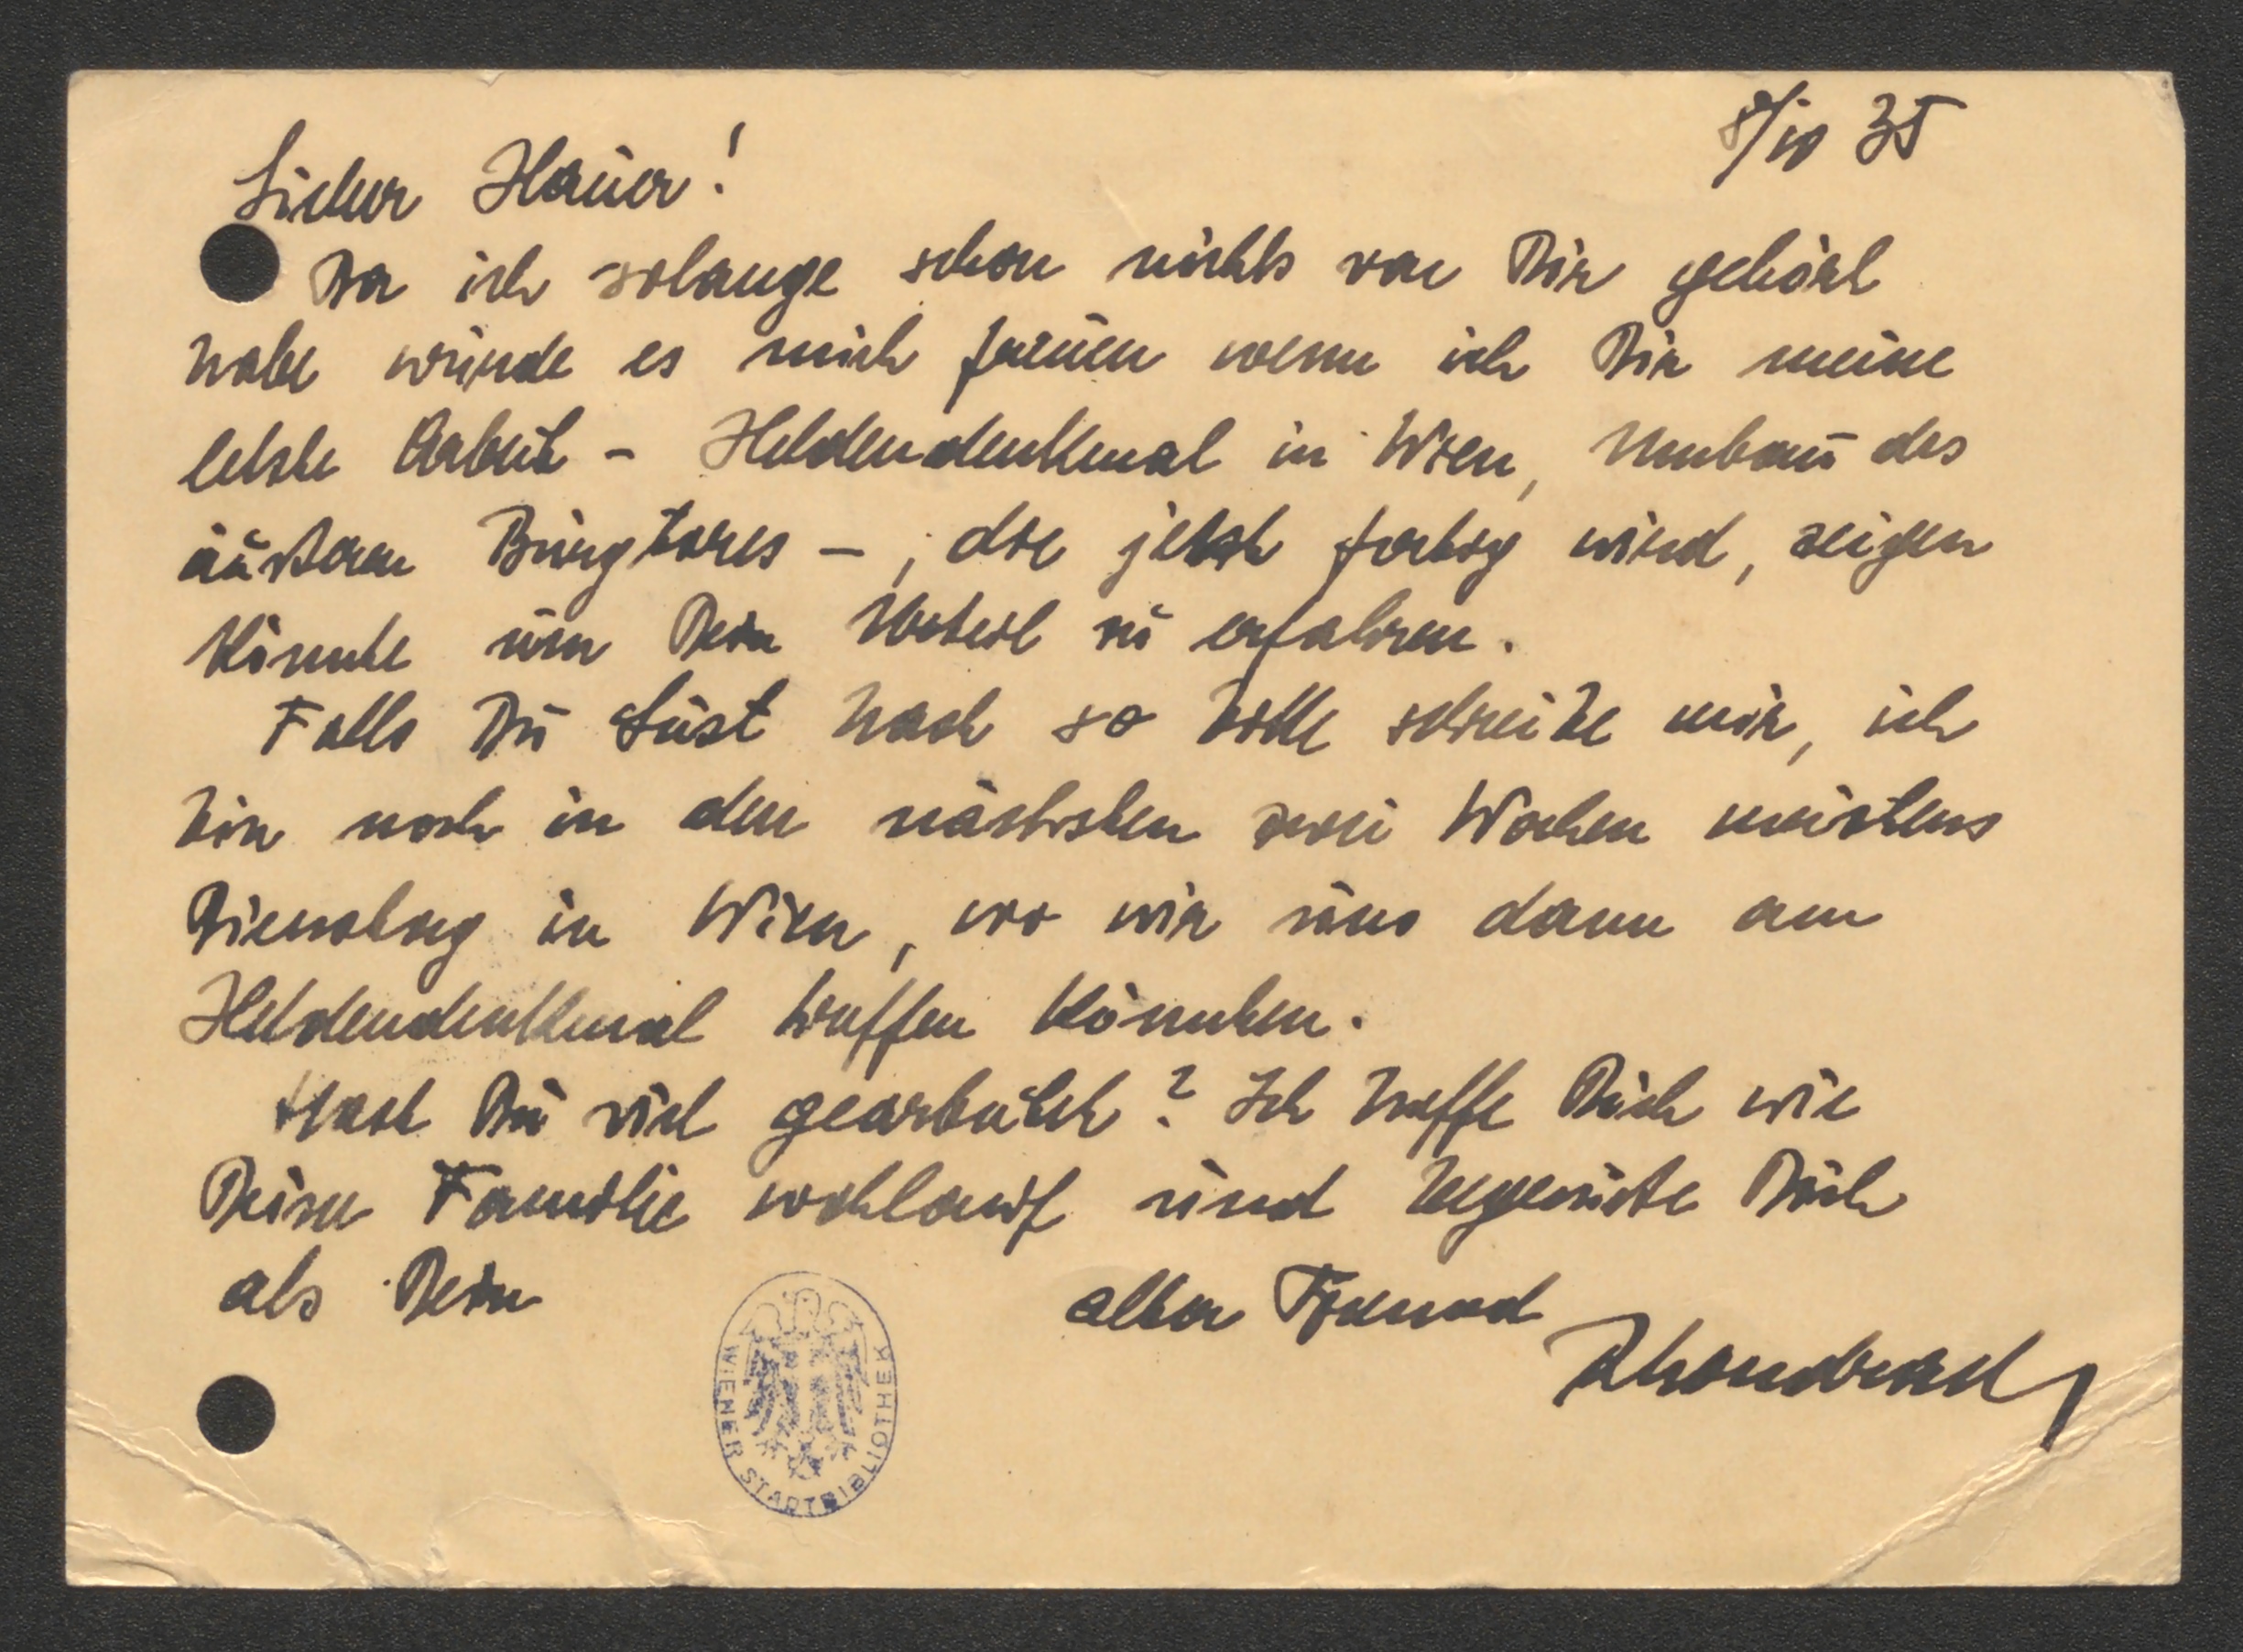 8/10 35
Lieber Hauer!
Da ich solange schon nichts von Dir gehört
habe würde es mich freuen wenn ich Dir meine
letzte Arbeit - Heldendenkmal in Wien, Umbau des
äußeren Burgtores -, die jetzt fertig wird, zeigen
könnte um Dein Urteil zu erfahren.
Falls Du Lust hast so bitte schreibe mir, ich
bin noch in den nächsten zwei Wochen meistens
Dienstag in Wien, wo wir uns dann am
Heldendenkmal treffen könnten.
Hast Du viel gearbeitet? Ich hoffe Dich wie
Deine Familie wohlauf und begrüße Dich
als Dein alter Freund
RWondracek
WIENER STADTBIBLIOTHEK